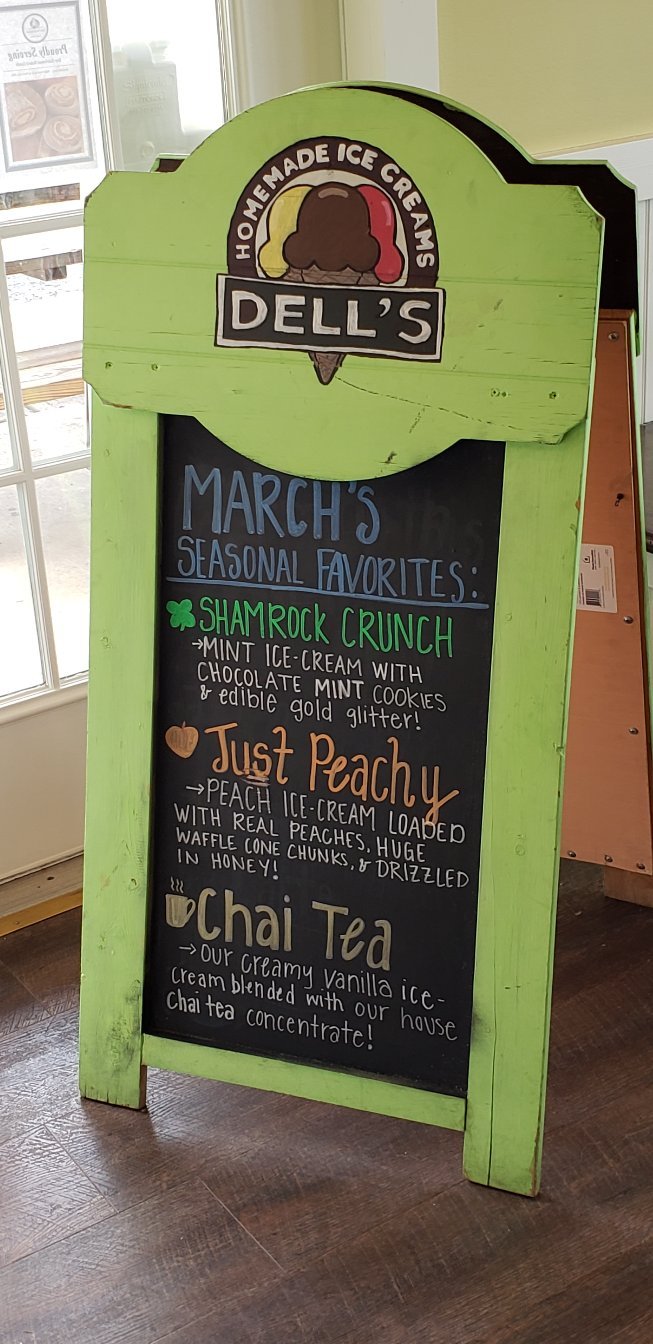 Proudly Serving
HOMEMADE ICE CREAMS
DELL'S
MARCH'S
SEASONAL FAVORITES:
SHAMROCK CRUNCH
→MINT ICE-CREAM WITH
CHOCOLATE MINT COOKIES
& edible gold glitter!
Just Peachy
→PEACH ICE-CREAM LOADED
WITH REAL PEACHES, HUGE
WAFFLE CONE CHUNKS, & DRIZZLED
IN HONEY!
Chai Tea
→our creamy vanilla ice-
cream blended with our house
chai tea concentrate!